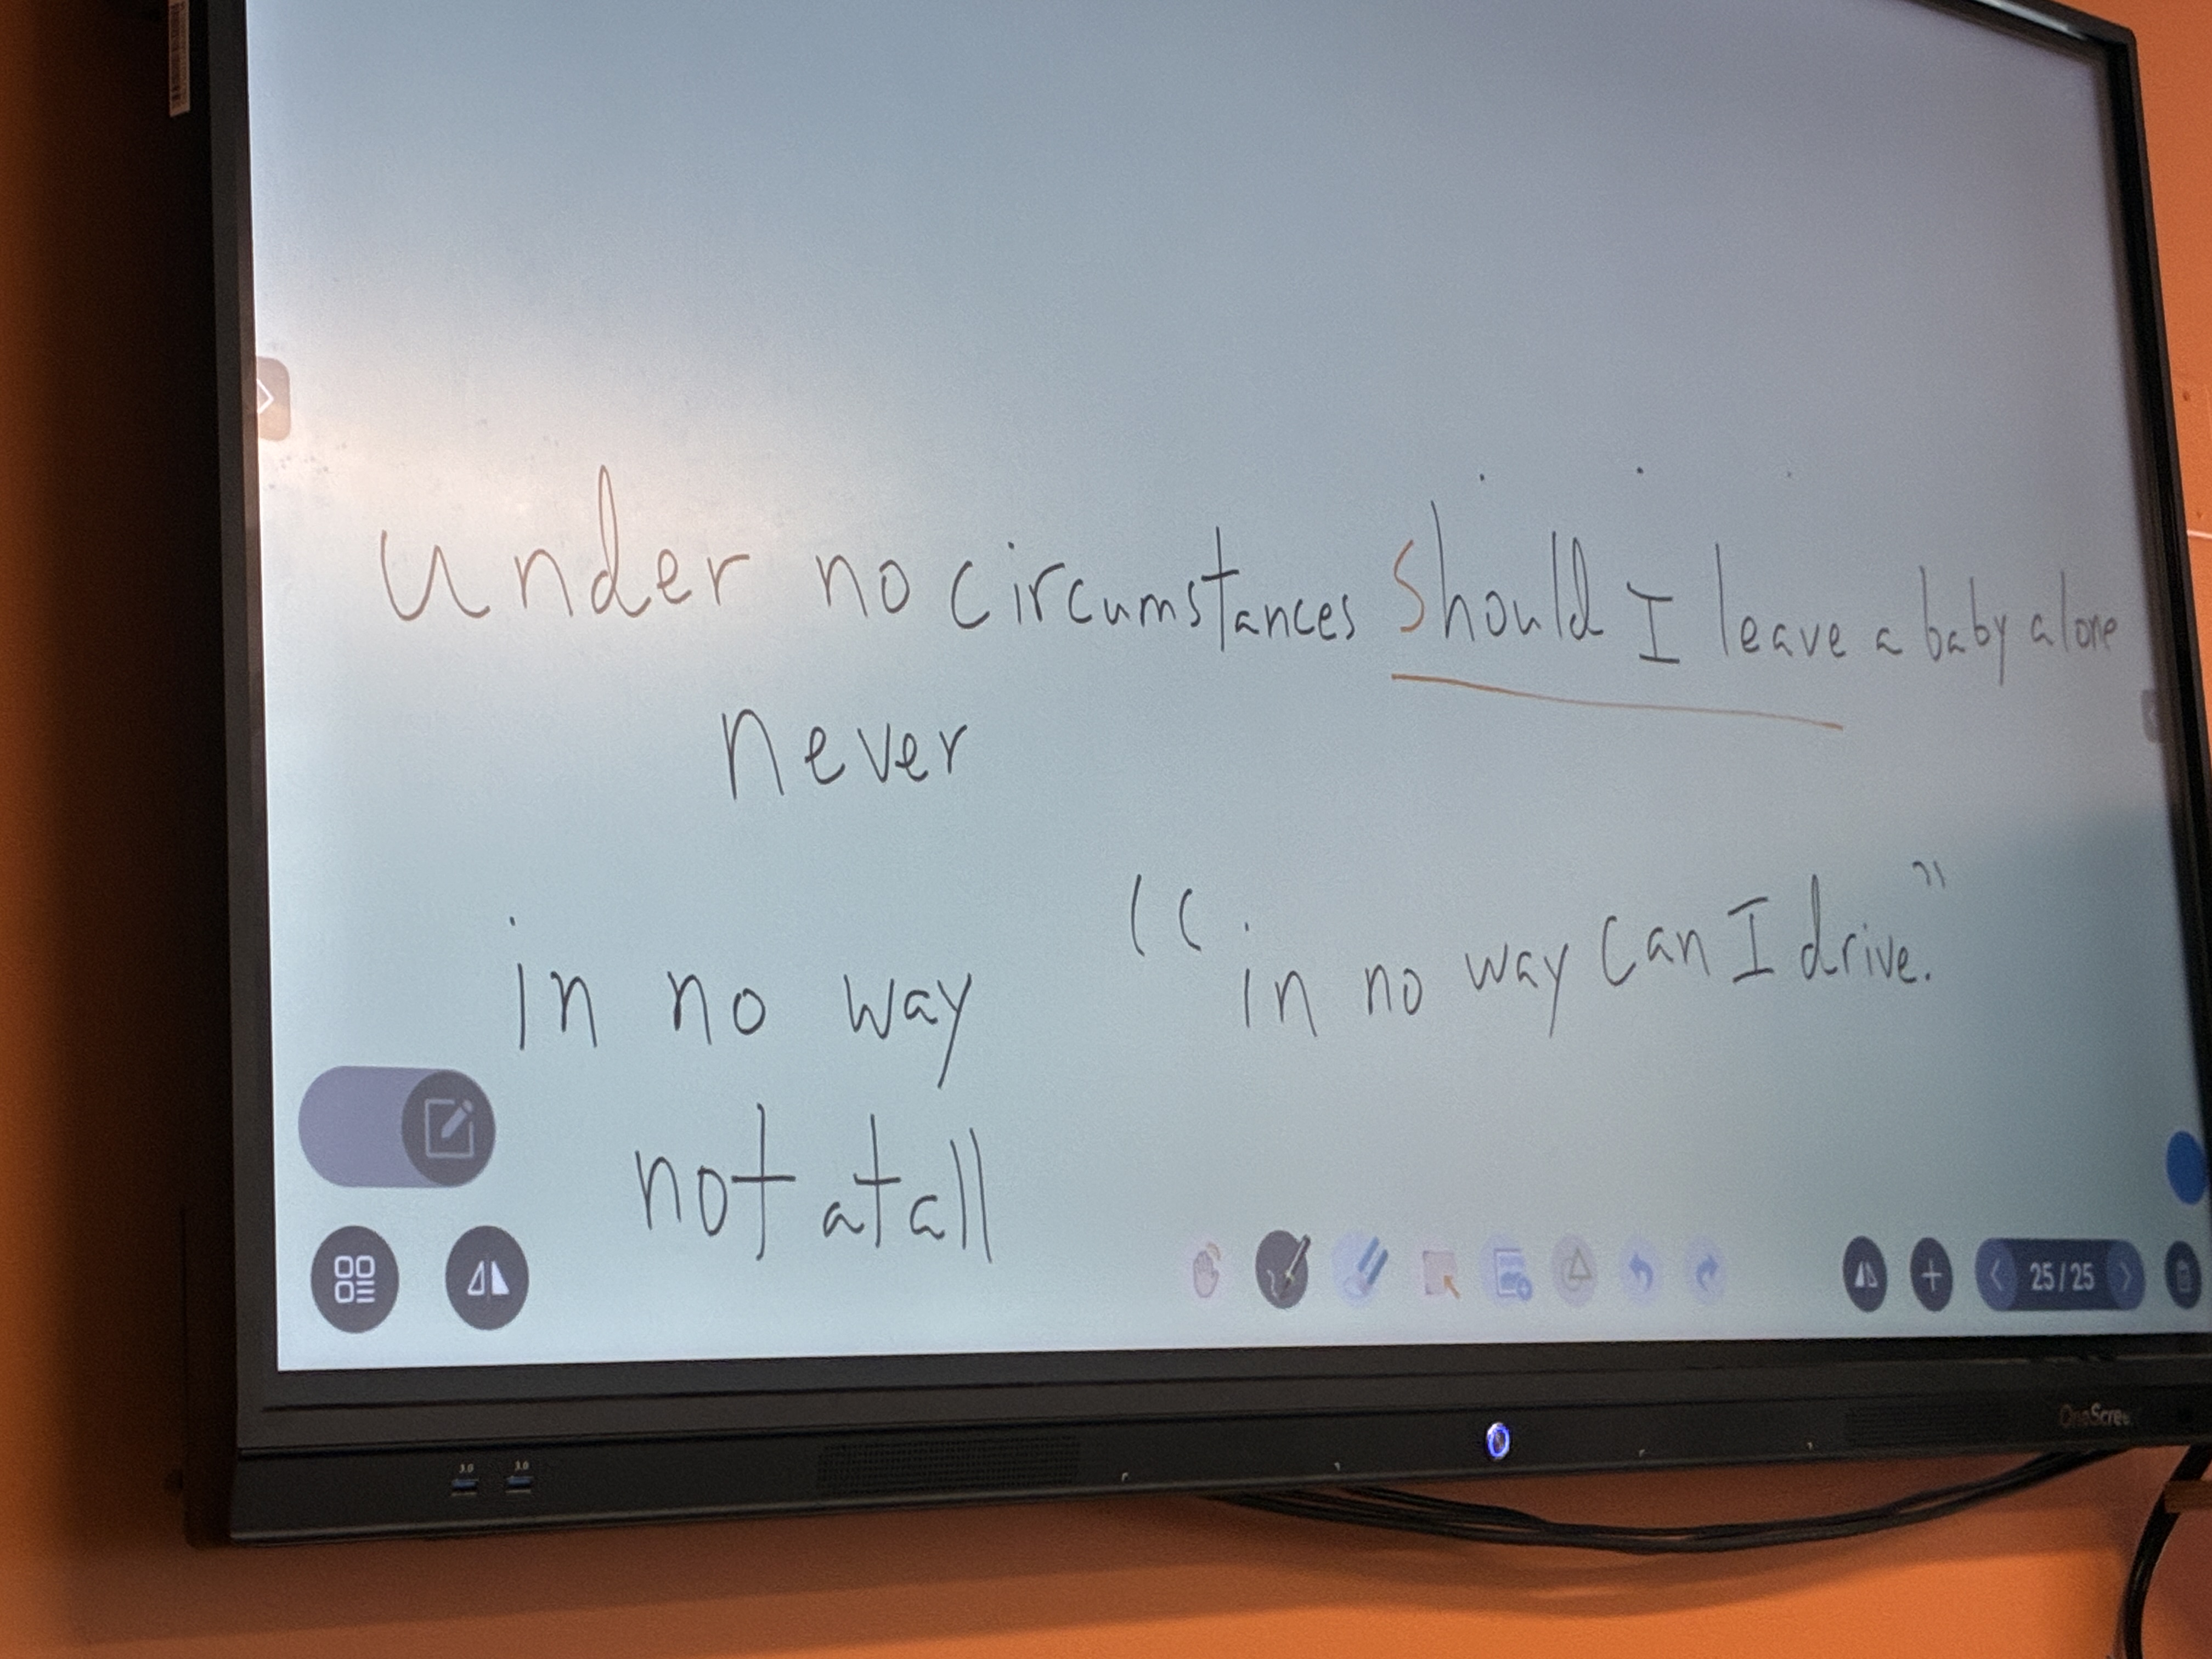 under no circumstances should I leave a baby alone
never
in no way
"in no way can I drive."
not at all
25/25
3.0 3.0
OneScreen